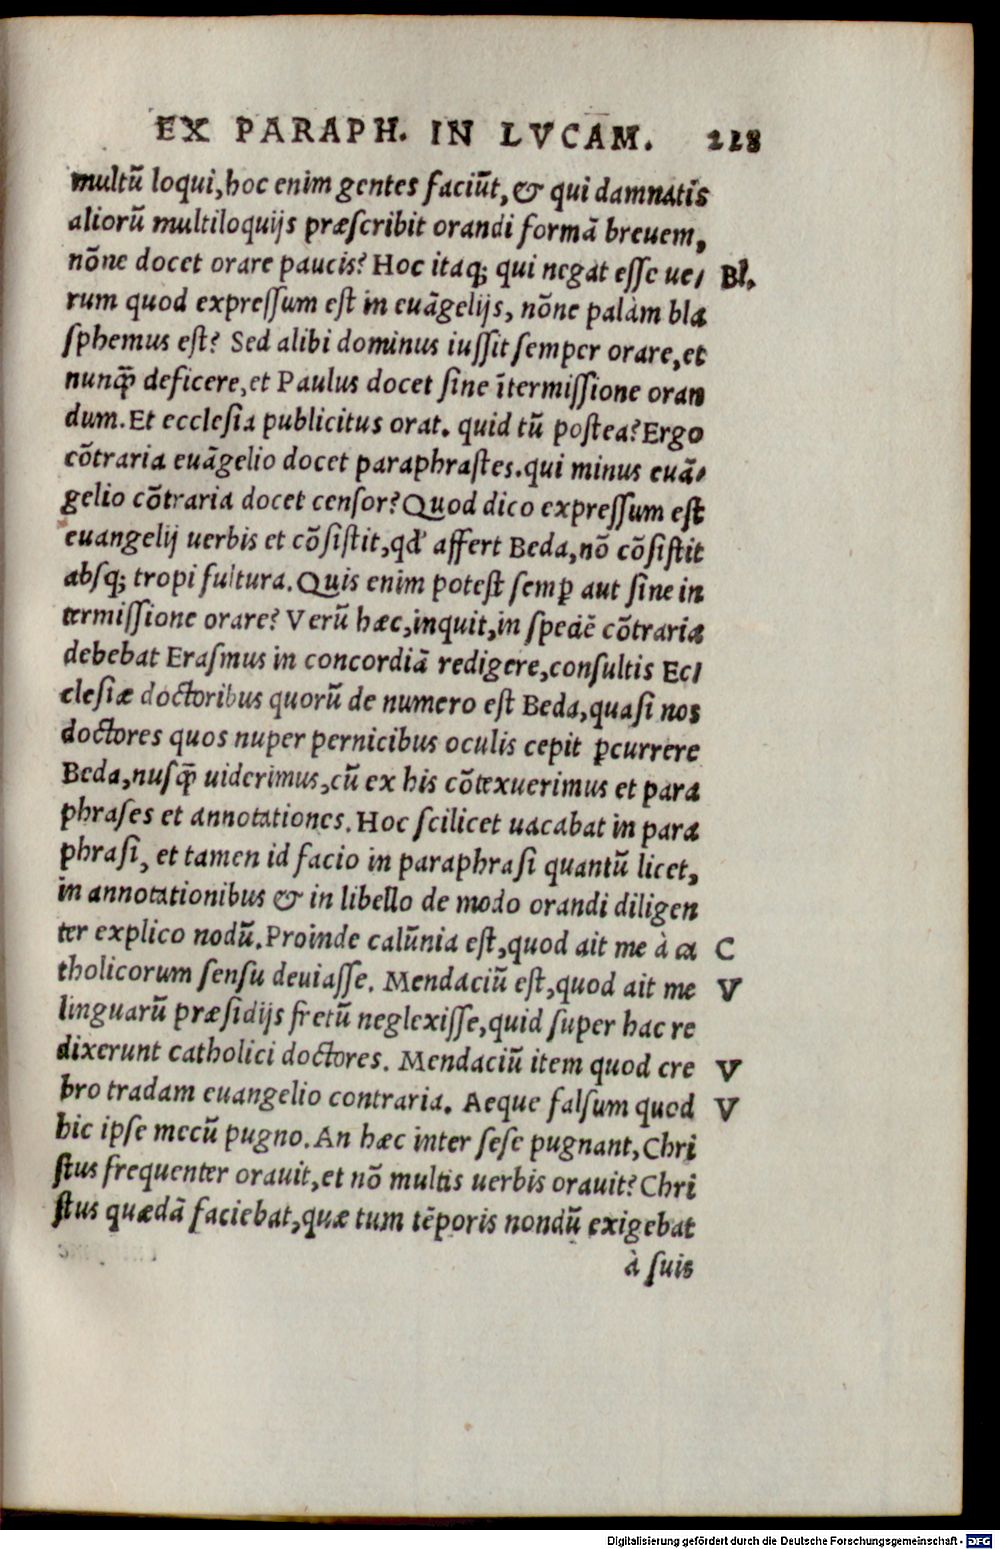 EX PARAPH. IN LVCAM. 228
multū loqui, hoc enim gentes faciūt, & qui damnatis
aliorū multiloquijs præſcribit orandi formā breuem,
nōne docet orare paucis? Hoc itaq; qui negat eſſe ue/ Bl.
rum quod expreſſum eſt in euāgelijs, nōne palàm bla
ſphemus eſt? Sed alibi dominus iuſſit ſemper orare, et
nunq̄ deficere, et Paulus docet ſine ītermiſſione oran
dum. Et eccleſia publicitus orat. quid tū poſtea? Ergo
cōtraria euāgelio docet paraphraſtes. qui minus euā/
gelio cōtraria docet cenſor? Quod dico expreſſum eſt
euangelij uerbis et cōſiſtit, qd' affert Beda, nō cōſiſtit
abſq; tropi fultura. Quis enim poteſt ſemꝑ aut ſine in
termiſſione orare? Verū hæc, inquit, in ſpeciē cōtraria
debebat Eraſmus in concordiā redigere, conſultis Ec/
cleſiæ doctoribus quorū de numero eſt Beda, quaſi nos
doctores quos nuper pernicibus oculis cepit ꝑcurrere
Beda, nuſq̄ uiderimus, cū ex his cōtexuerimus et para
phraſes et annotationes. Hoc ſcilicet uacabat in para
phraſi, et tamen id facio in paraphraſi quantū licet,
in annotationibus & in libello de modo orandi diligen
ter explico nodū. Proinde calūnia eſt, quod ait me à ca C
tholicorum ſenſu deuiaſſe. Mendaciū eſt, quod ait me V
linguarū præſidijs fretū neglexiſſe, quid ſuper hac re
dixerunt catholici doctores. Mendaciū item quod cre V
bro tradam euangelio contraria. Aeque falſum quod V
hic ipſe mecū pugno. An hæc inter ſeſe pugnant, Chri
ſtus frequenter orauit, et nō multis uerbis orauit? Chri
ſtus quædā faciebat, quæ tum tēporis nondū exigebat
à ſuis
Digitalisierung gefördert durch die Deutsche Forschungsgemeinschaft - DFG